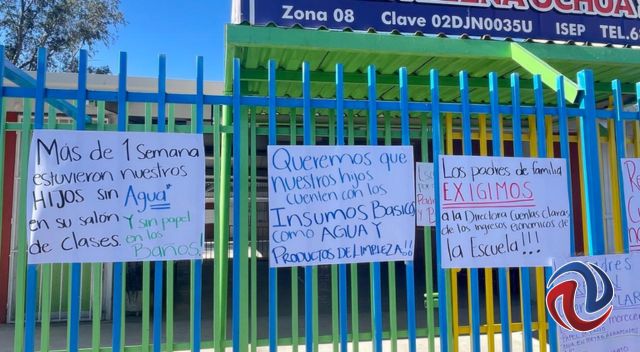 ENA OCHOA
Zona 08 Clave 02DJN0035U ISEP TEL.6
Más de 1 Semana
estuvieron nuestros
HIJOS sin Agua*
en su salón
de clases. Y sin papel
en los
Baños.
Queremos que
nuestros hijos
cuenten con los
Insumos Basico,
como AGUA Y
Productos DE LIMPIEZA!!
Los padres de familia
EXIGIMOS
a la Directora cuentas claras
de los ingresos economicos de
la Escuela!!!